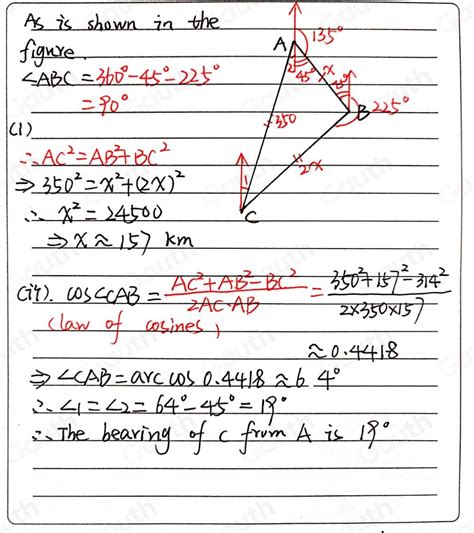 As is shown in the
figure.
∠ABC = 360° - 45° - 225°
= 90°
(1)
∴ AC² = AB² + BC²
⇒ 350² = x² + (2x)²
∴ x² = 24500
⇒ x ≈ 157 km
(ii). cos∠CAB = \frac{AC² + AB² - BC²}{2AC·AB} = \frac{350² + 157² - 314²}{2×350×157}
(law of cosines)
≈ 0.4418
⇒ ∠CAB = arc cos 0.4418 ≈ 6 4°
∴ ∠1 = ∠2 = 64° - 45° = 19°
∴ The bearing of C from A is 19°
A
135°
2
45°
x
B
225°
350
2x
1
C
Gauth